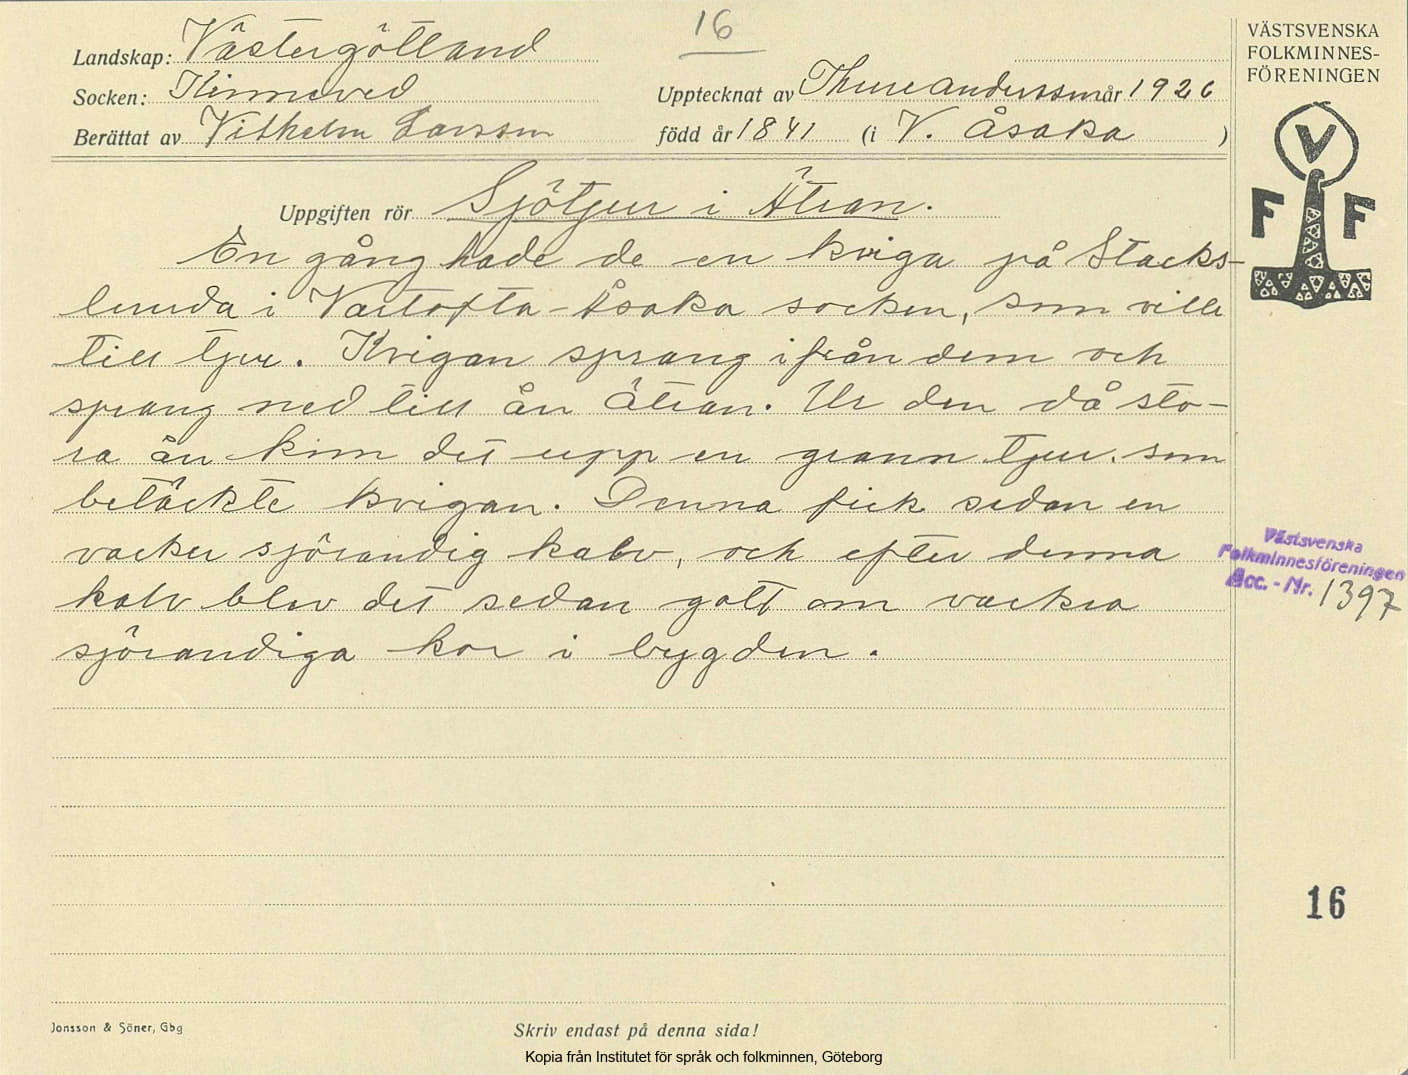 16
Landskap: Västergötland
Socken: Kinneved
Upptecknat av Thure Andersson år 1926
Berättat av Vilhelm Larsson född år 1841 (i V. Åsaka )
VÄSTSVENSKA
FOLKMINNES-
FÖRENINGEN
V
F F
Uppgiften rör Sjötjur i Ätran.
En gång hade de en kviga på Stacks-
lunda i Vartofta-Åsaka socken, som ville
till tjur. Kvigan sprang ifrån dem och
sprang ned till ån Ätran. Ur den då sto-
ra ån kom det upp en grann tjur, som
betäckte kvigan. Denna fick sedan en
vacker sjörandig kalv, och efter denna
kalv blev det sedan gott om vackra
sjörandiga kor i bygden.
Västsvenska
Folkminnesföreningen
Acc. - Nr. 1397
16
Jonsson & Söner, Gbg
Skriv endast på denna sida!
Kopia från Institutet för språk och folkminnen, Göteborg